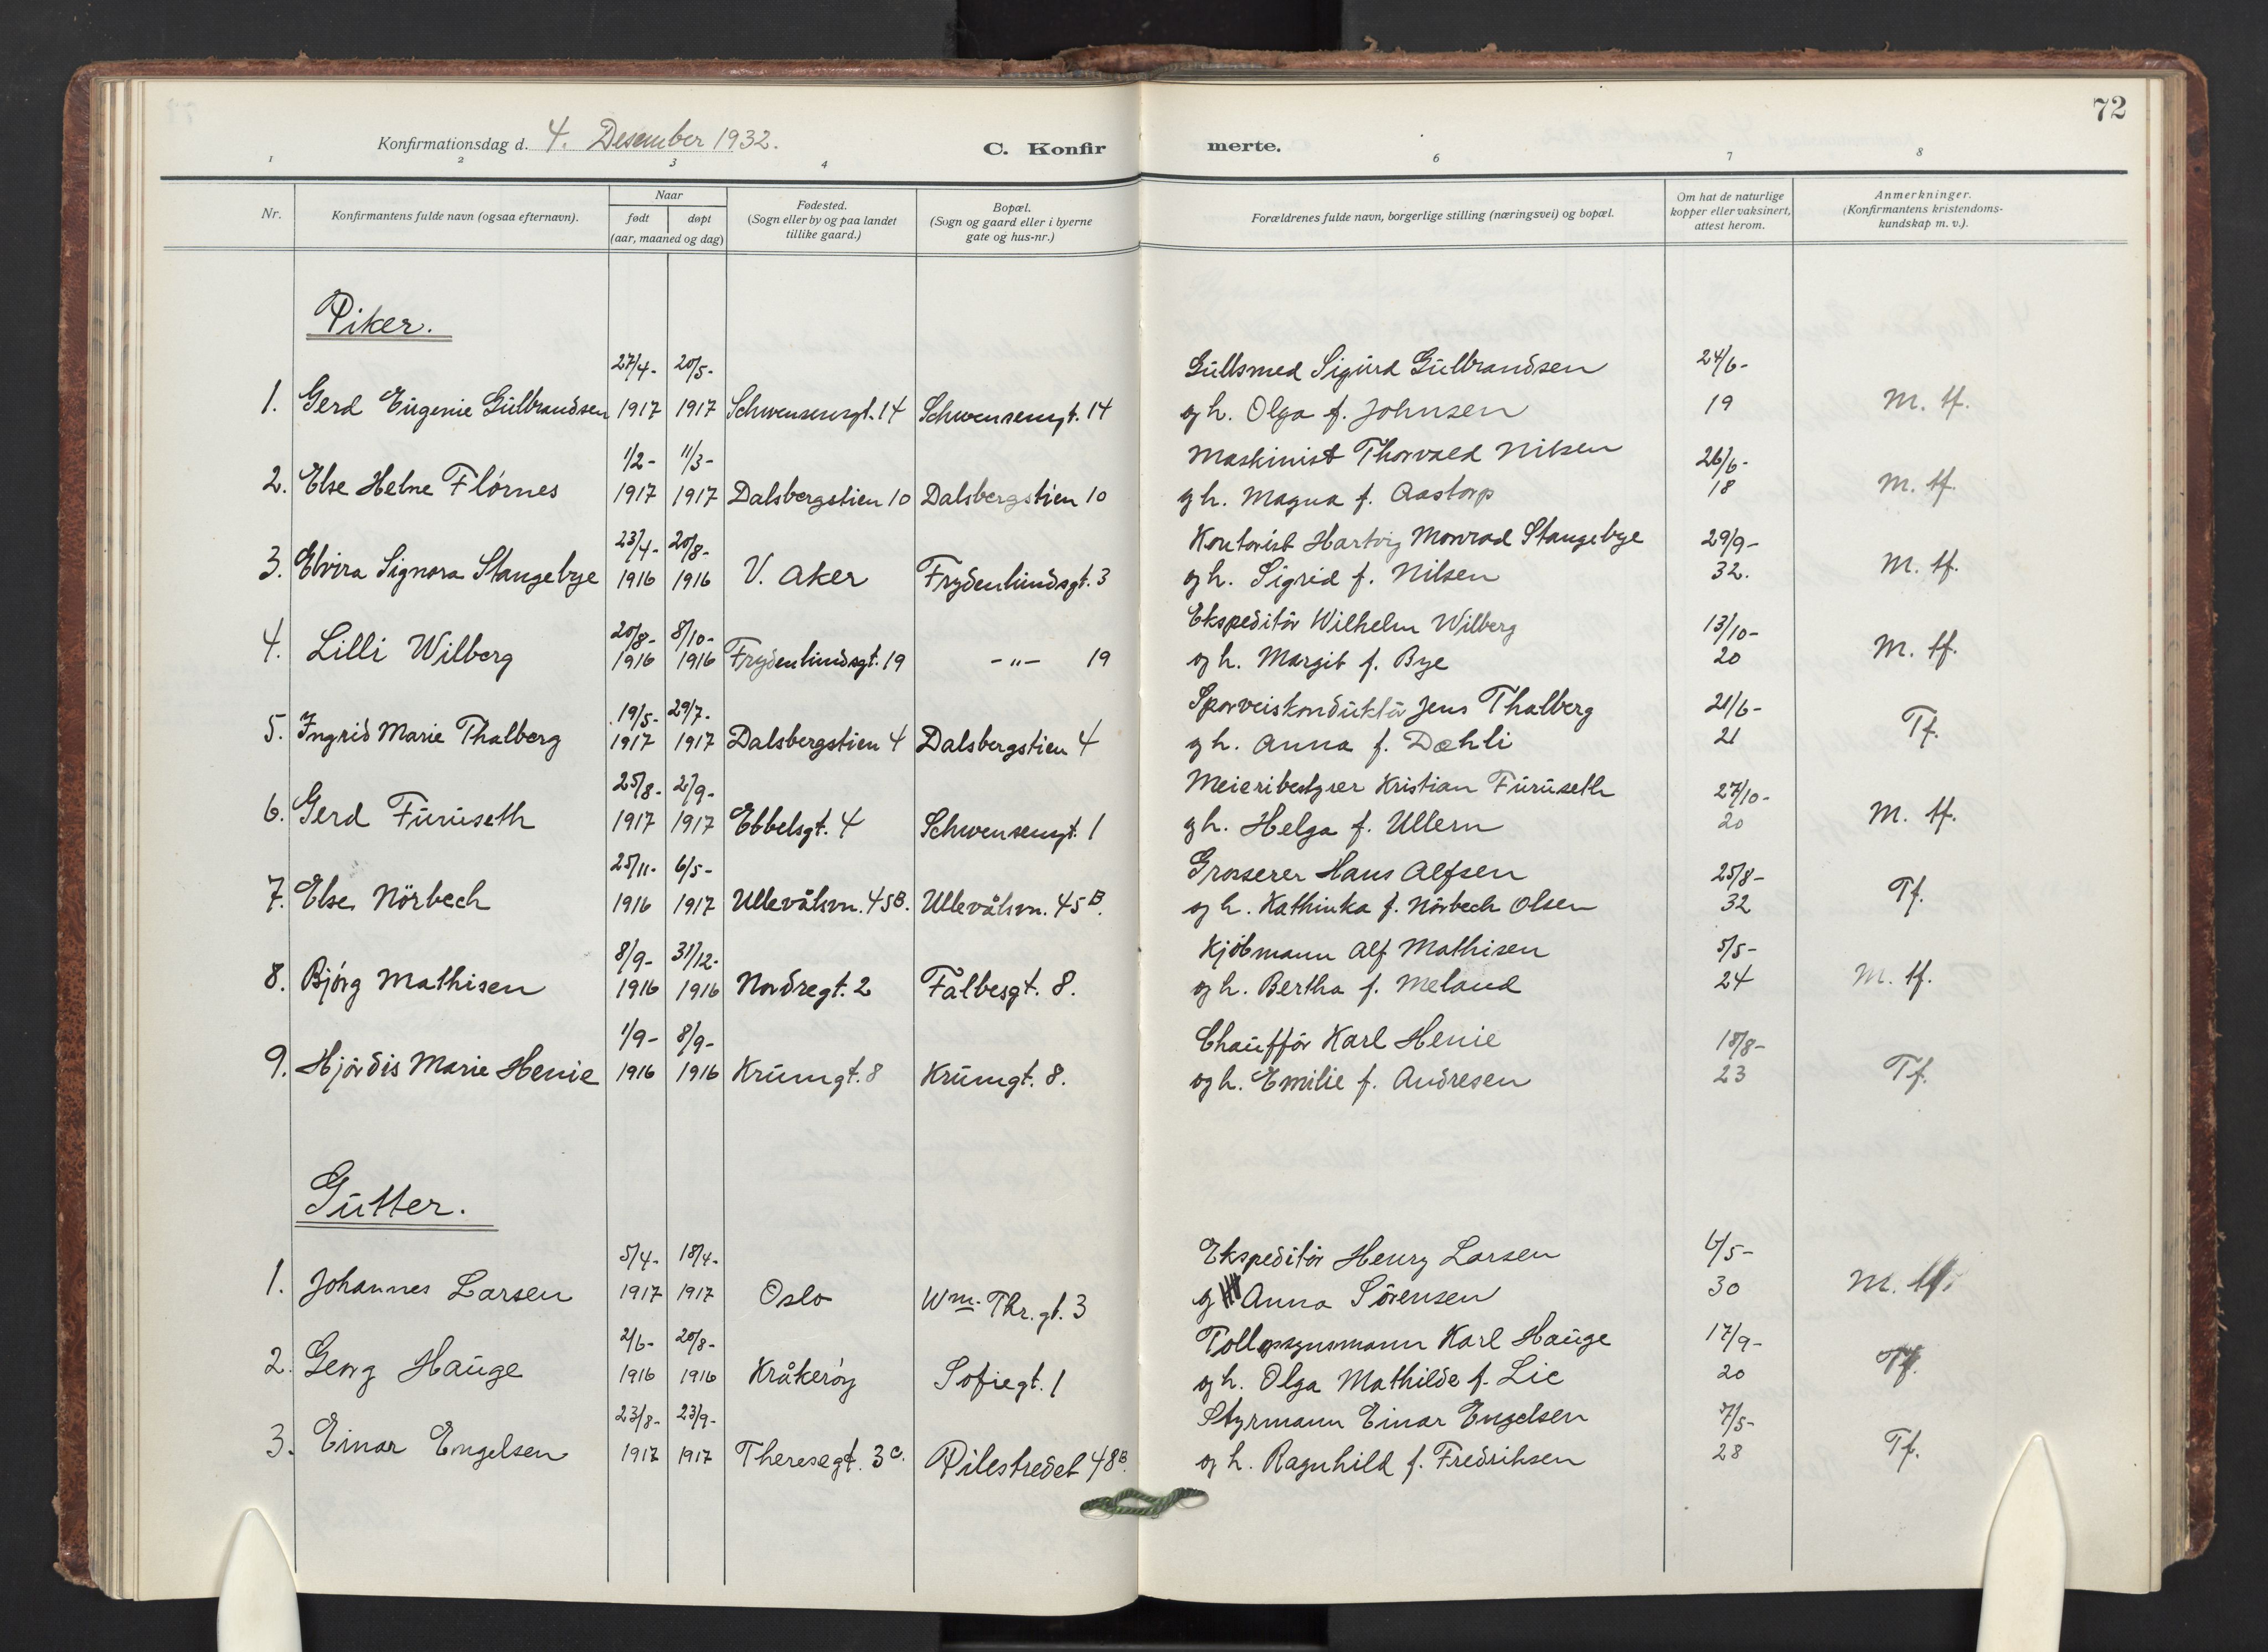 72
Konfirmationsdag d. 4. Desember 1932.
C. Konfirmerte.
1 2 3 4 6 7 8
Nr.
Konfirmantens fulde navn (ogsaa efternavn).
Naar
født døpt
(aar, maaned og dag)
Fødested.
(Sogn eller by og paa landet
tillike gaard.)
Bopæl.
(Sogn og gaard eller i byerne
gate og hus-nr.)
Forældrenes fulde navn, borgerlige stilling (næringsvei) og bopæl.
Om hat de naturlige
kopper eller vaksinert,
attest herom.
Anmerkninger.
(Konfirmantens kristendoms-
kundskap m. v.).
Piker.
27/4- 20/5- Gullsmed Sigurd Gulbrandsen 24/6-
1. Gerd Eugenie Gulbrandsen 1917 1917 Schwensensgt. 14 Schwensengt. 14 og h. Olga f. Johnsen 19 M. tf.
1/2- 11/3- Maskinist Thorvald Nilsen 26/6-
2. Else Helne Flörnes 1917 1917 Dalsbergstien 10 Dalsbergstien 10 g h. Magna f. Aastorp 18 M. tf.
23/4- 20/8- Kontorist Hartvig Monrad Stangebye 29/9-
3. Elvira Signora Stangebye 1916 1916 V. Aker Frydenlundsgt. 3 og h. Sigrid f. Nilsen 32. M. tf.
20/8- 8/10- Ekspeditör Wilhelm Wilberg 13/10-
4. Lilli Wilberg 1916 1916 Frydenlundsgt. 19 -"- 19 og h. Margit f. Bye 20 M. tf.
19/5- 29/7- Sporveiskonduktör Jens Thalberg 21/6-
5. Ingrid Marie Thalberg 1917 1917 Dalsbergstien 4 Dalsbergstien 4 g h. Anna f. Dæhli 21 Tf.
25/8- 2/9- Meieribestyrer Kristian Furuseth 27/10-
6. Gerd Furuseth 1917 1917 Ebbelsgt. 4 Schwensengt. 1 g h. Helga f. Ullern 20 M. tf.
25/11- 6/5- Grosserer Hans Alfsen 25/8-
7. Else Nörbech 1916 1917 Ullevålsvn. 45B. Ullevålsvn. 45B. og h. Kathinka f. Nörbech Olsen 32 Tf.
8/9- 31/12- Kjöbmann Alf Mathisen 5/5-
8. Björg Mathisen 1916 1916 Nordregt. 2 Falbesgt. 8. og h. Bertha f. Meland 24 M. tf.
1/9- 8/9- Chaufför Karl Henie 18/8-
9. Hjördis Marie Henie 1916 1916 Krumgt. 8 Krumgt. 8. og h. Emilie f. Andresen 23 Tf.
Gutter.
5/4- 18/4- Ekspeditör Henry Larsen 6/5-
1. Johannes Larsen 1917 1917 Oslo Wm. Thr. gt. 3 g Anna Sörensen 30 M. tf.
2/6- 20/8- Tollopsynsmann Karl Hauge 17/9-
2. Georg Hauge 1916 1916 Kråkeröy Sofiegt. 1 og h. Olga Mathilde f. Lie 20 Tf.
23/8- 23/9- Styrmann Einar Engelsen 7/5-
3. Einar Engelsen 1917 1917 Theresegt. 3c. Pilestredet 48B. og h. Ragnhild f. Fredriksen 28 Tf.